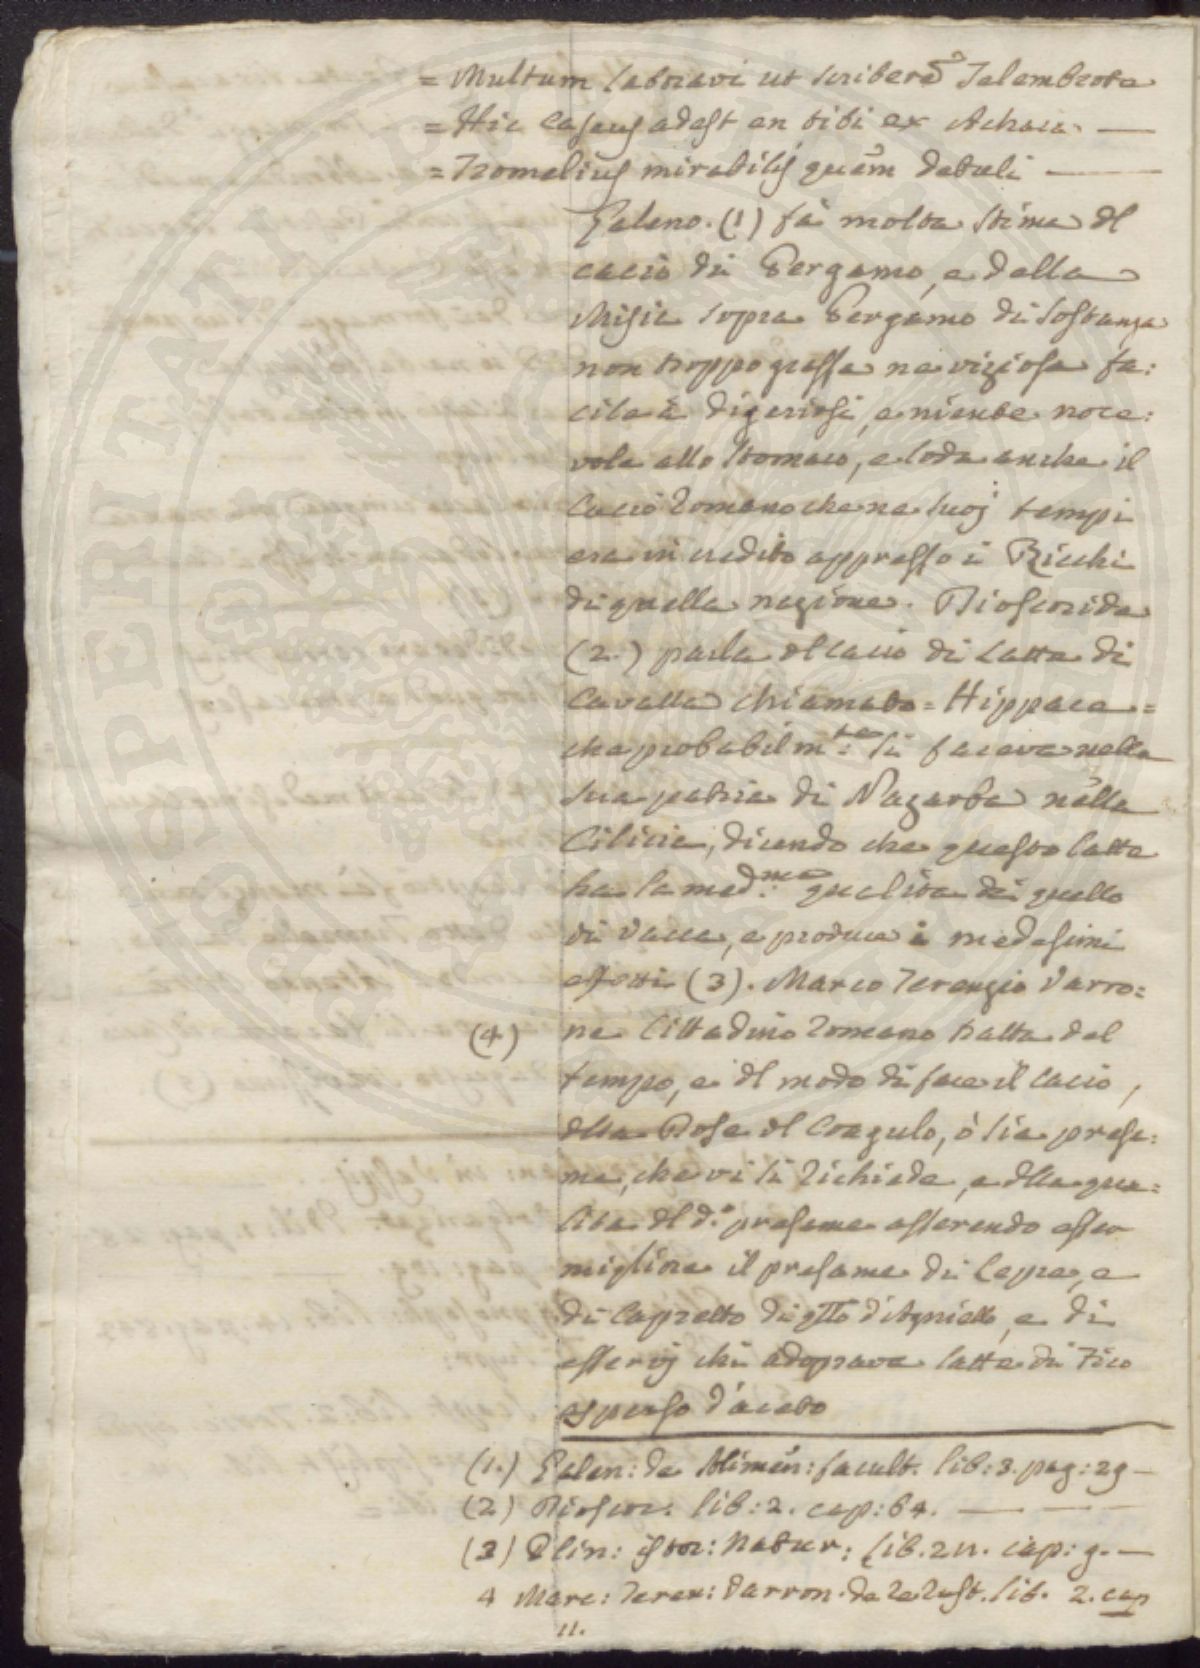 = Multum laboravi ut scriberē Talembrota
= Hic caseus adest en tibi ex Achaia —
= Tromelius mirabilis quem detuli —
Galeno. (1) fà molta stima dl
cacio di Pergamo, e della
Misia sopra Pergamo di sostanza
non troppo grassa ne viziosa fa:
cile à digerirsi, e niente noce:
vole allo stomaco, e loda anche il
Cacio Romano che ne suoj tempi
era in credito appresso i Ricchi
di quella nazione. Dioscoride
(2.) parla dl cacio di Latte di
Cavalla chiamato = Hippace =
che probabilm:te si faceva nella
sua patria di Nazarba nella
Cilicia, dicendo che questo latte
ha la med:ma qualità di quello
di Vacca, e produce i medesimi
effetti (3). Marco Terenzio Varro=
(4) ne Cittadino Romano tratta del
tempo, e dl modo di fare il cacio,
dlla Dose dl Coagulo, ò sia presa:
me, che vi si richiede, e dlla qua=
lità dl d.o presame asserendo esser
migliore il presame di Lepre, e
di Capretto di qllo d'Agnello, e di
esservj chi adoprava latte di Fico
asperso d'aceto
(1.) Galen: de Alimen: facult. lib: 3. pag: 29 —
(2) Dioscor: lib: 2. cap: 64. —
(3) Plin: istor: Natur: Lib. 2u. cap: 9. —
4 Marc: Teren: Varron. de Re Rust. lib. 2. cap
11.